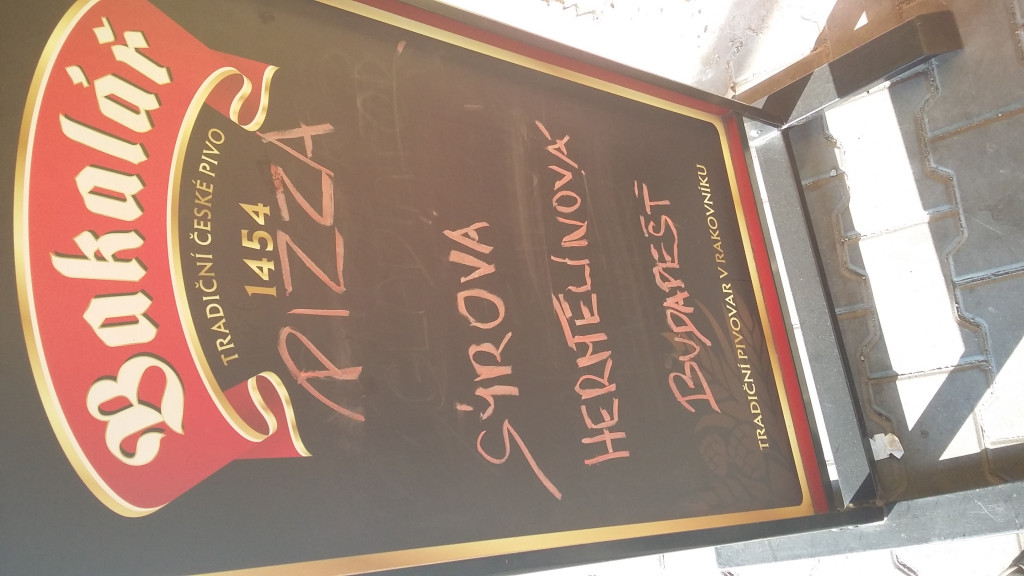 Bakalář
TRADIČNÍ ČESKÉ PIVO
1454
PIZZA
SÝROVÁ
HERMELÍNOVÁ
BUDAPEST
TRADIČNÍ PIVOVAR V RAKOVNÍKU